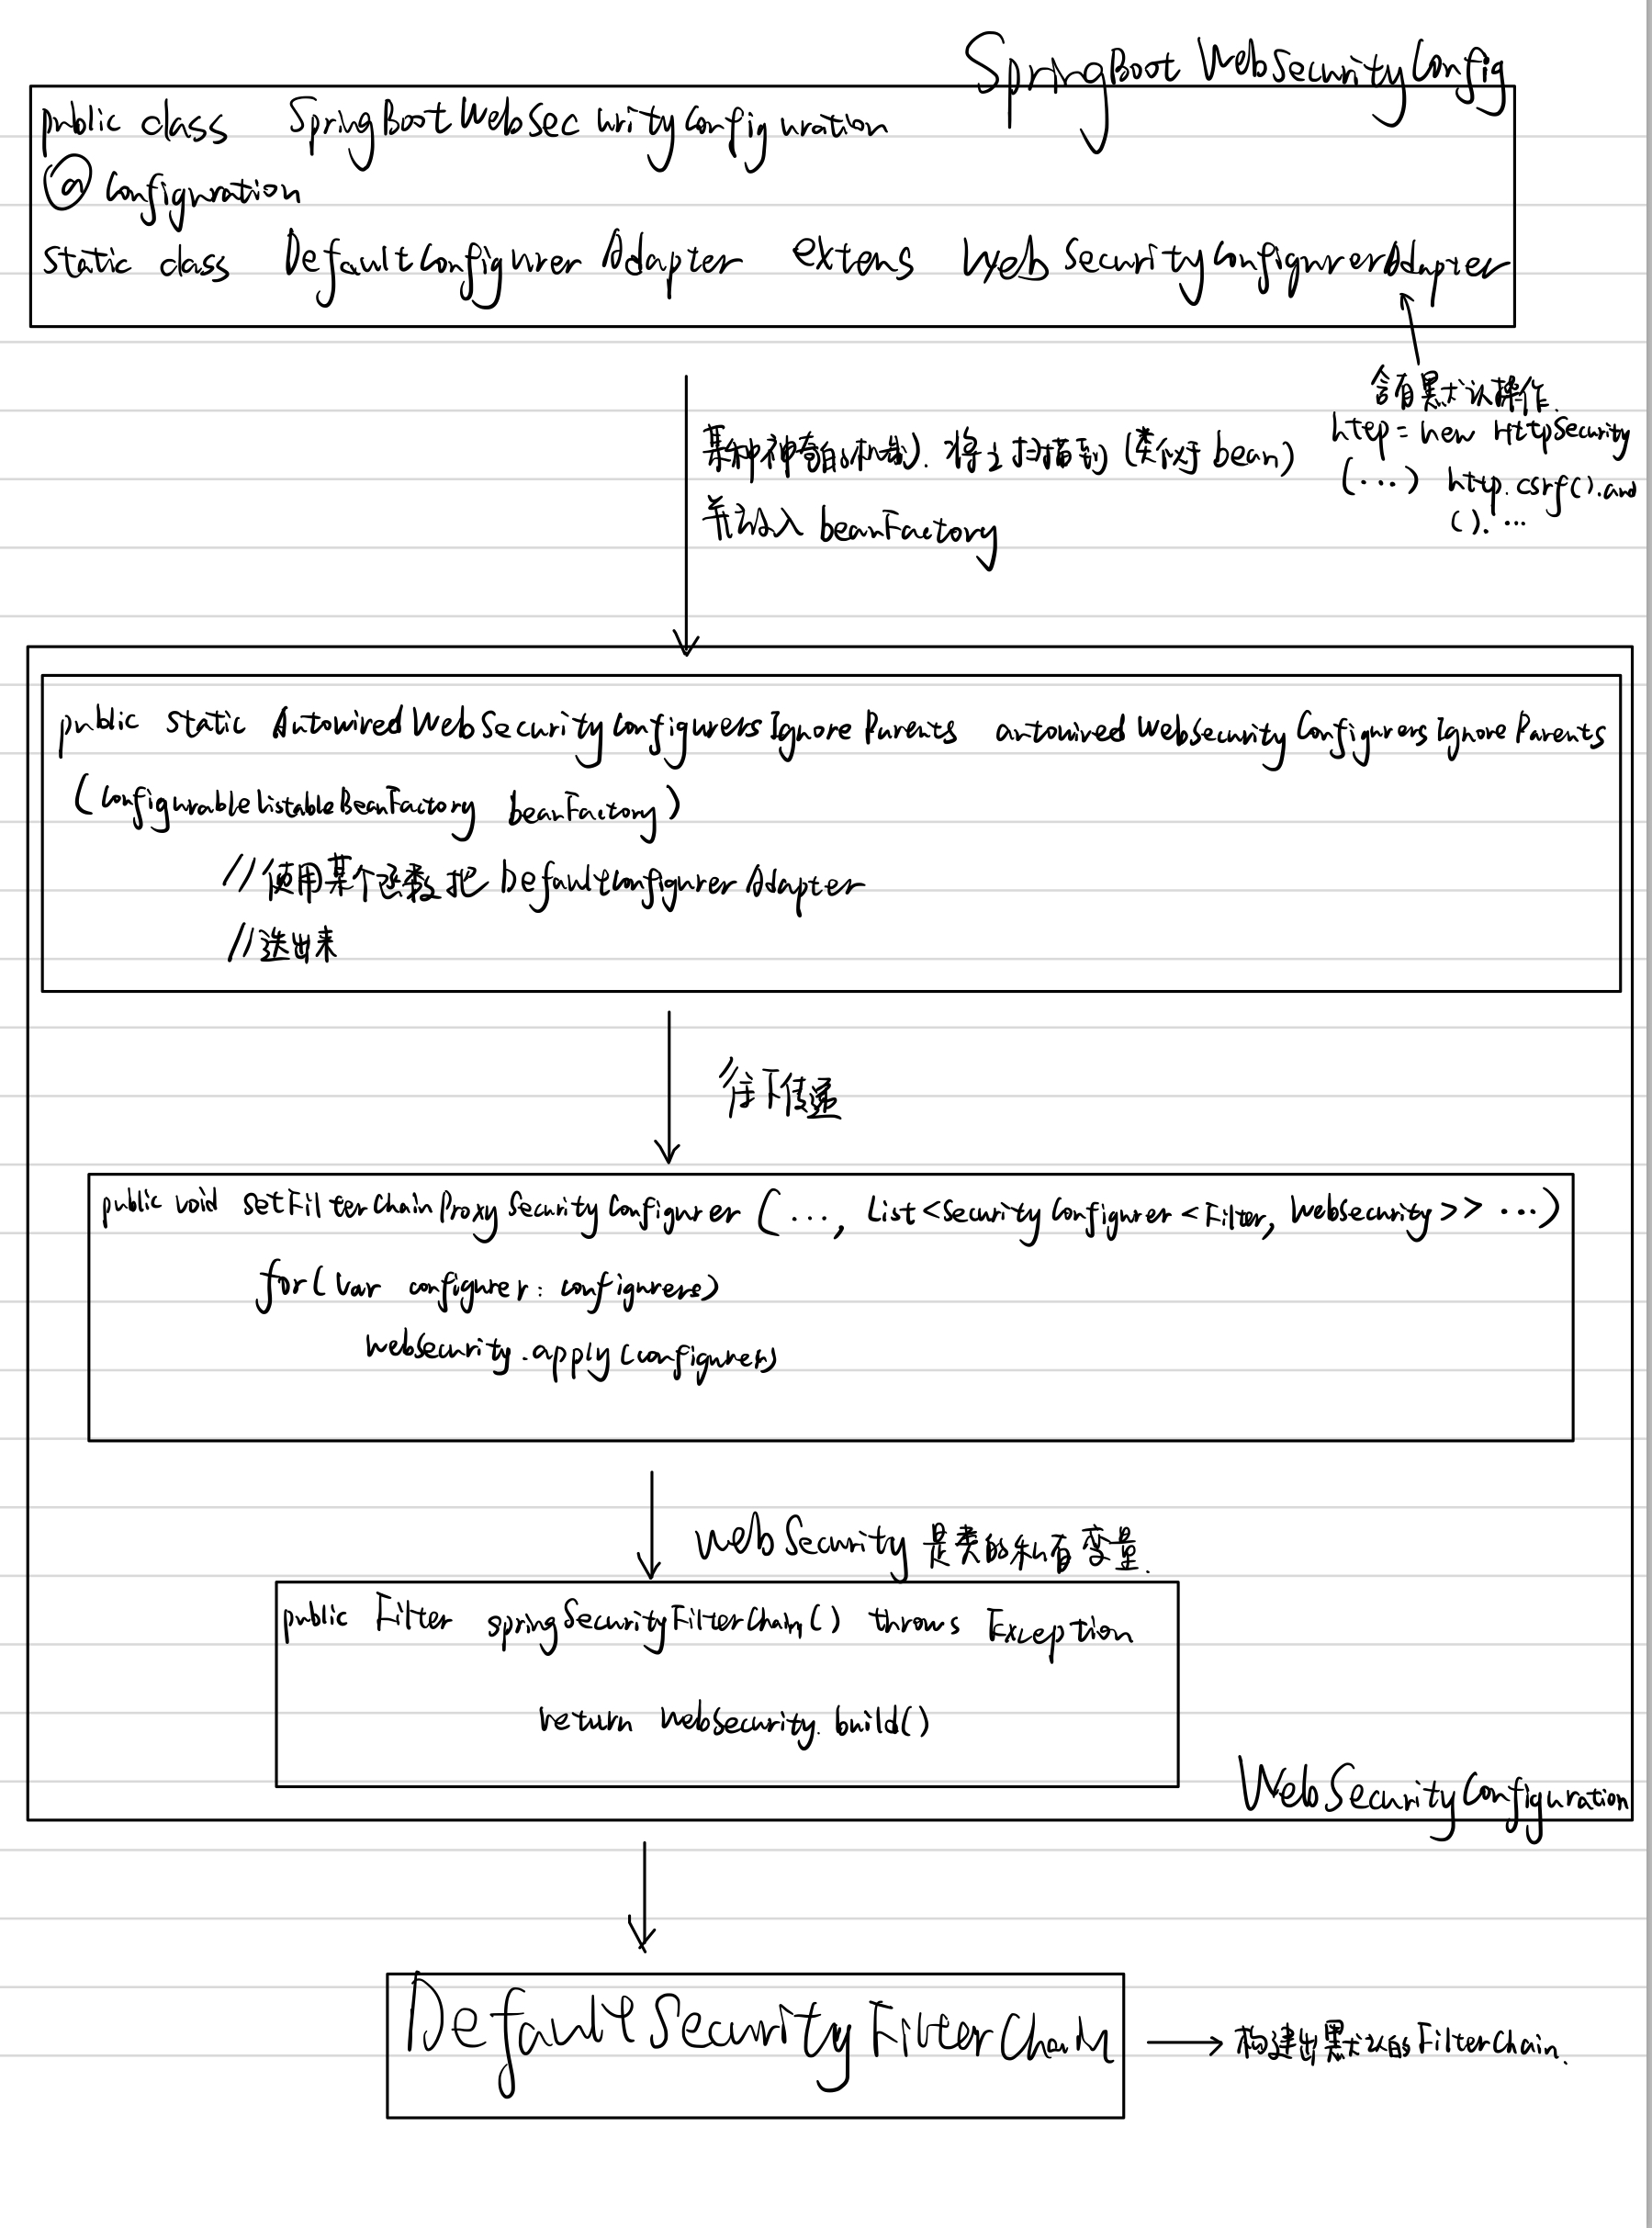 SpringBoot WebSecurityConfig
public class SpringBootWebSecurityConfiguration
@Configuration
static class DefaultConfigurerAdapter extens WebSecurityConfigurerAdapter
含有默认操作.
http = new HttpSecurity
(...) http.csrf().and
(). ...
某种神奇的机制. 将之扫描到 (类似于 bean)
并放入 beanFactory
public static AutowiredWebSecurityConfigurersIgnoreParents autowiredWebSecurityConfigurersIgnoreParents
(ConfigurableListableBeanFactory beanFactory)
//使用某个函数把 DefaultConfigurerAdapter
//选出来
//往下传递
public void setFilterChainProxySecurityConfigurer (..., List<SecurityConfigurer<Filter, WebSecurity>> ...)
for(var configurer: configurers)
webSecurity.apply(configurer)
webSecurity 是类的私有变量.
public Filter springSecurityFilterChain() throws Exception
return webSecurity.build()
WebSecurityConfiguration
DefaultSecurityFilterChain
构建出默认的FilterChain.